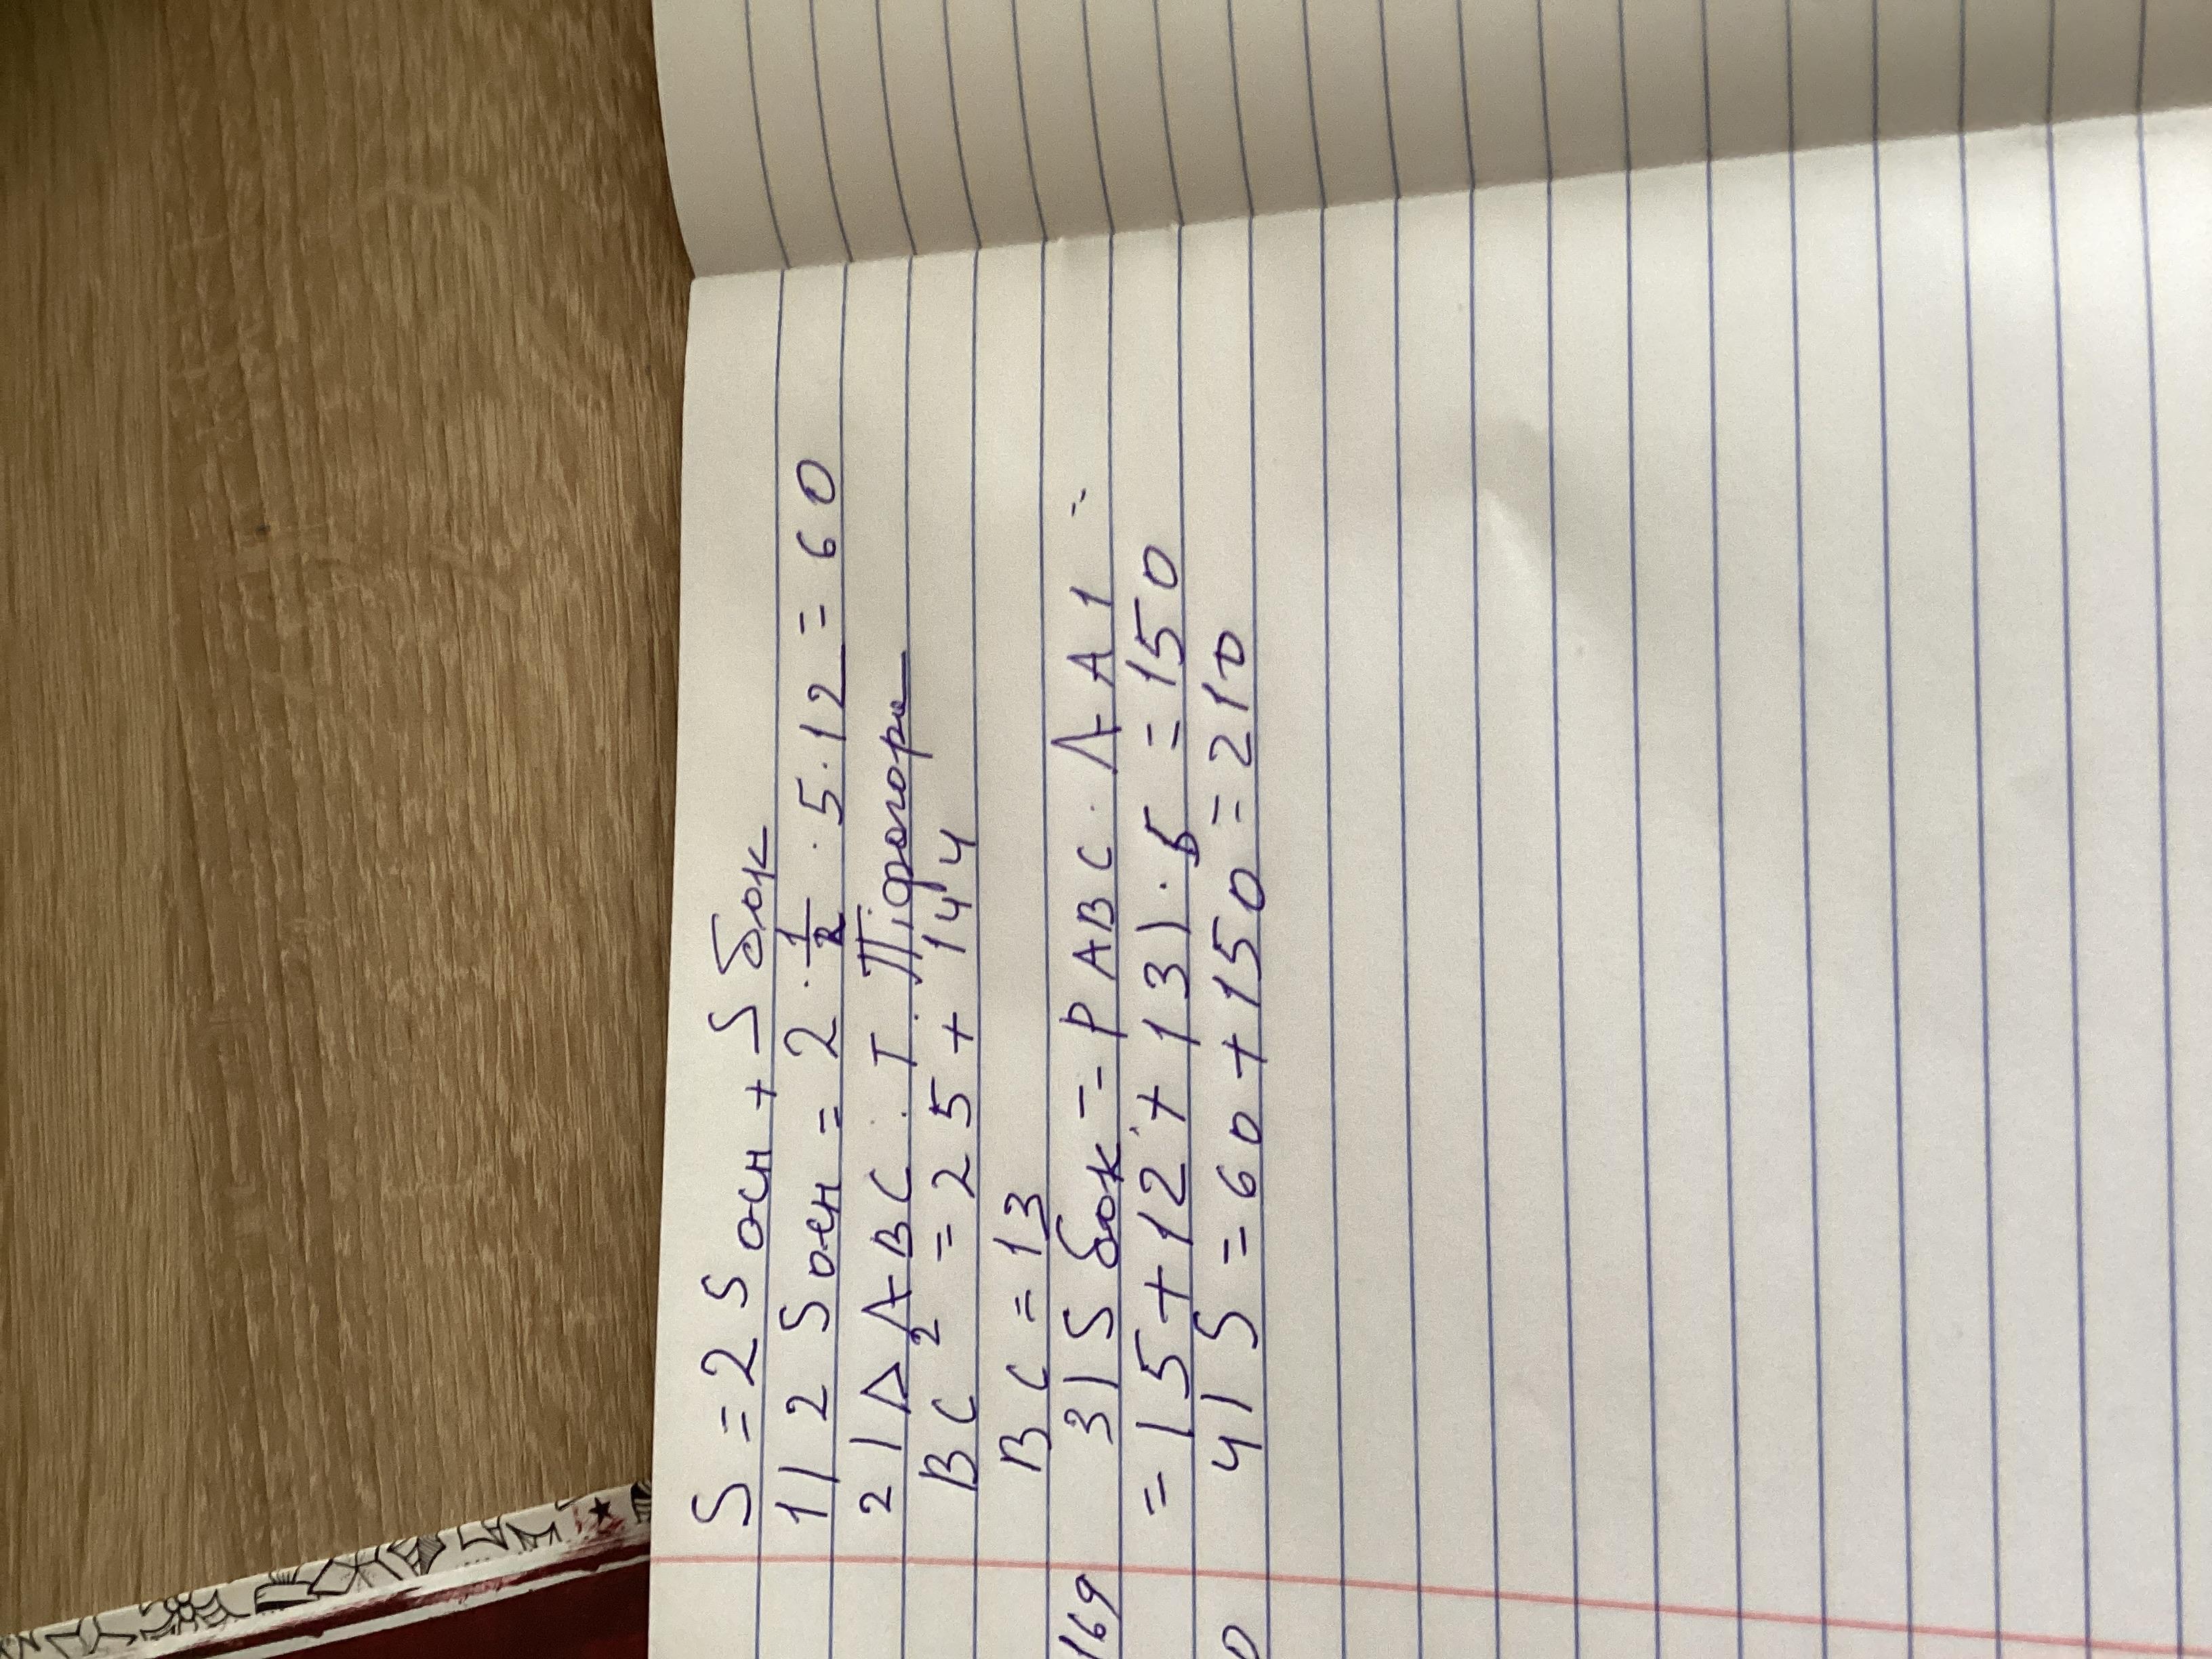 S = 2 S осн + S бок
1) 2 S осн = 2 · 1/2 · 5 · 12 = 60
2) Δ ABC . Т. Піфагора
BC² = 25 + 144
BC = 13
169 3) S бок = P ABC · AA1 =
= (5 + 12 + 13) · 5 = 150
0 4) S = 60 + 150 = 210